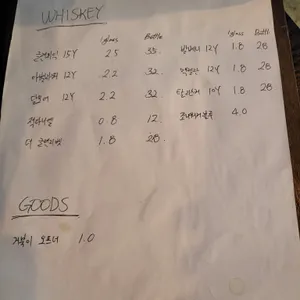 WHISKEY
1glass Bottle
글렌피딕 15Y 2.5 35.
2.2 32.
12Y 2.2 32.
잭다니엘 0.8 12.
더 글렌리벳 1.8 28.
발베니 12Y 1.8 28
맥캘란 12Y 1.8 28
탈리스커 10Y 1.8 28
조니워커블루 4.0
GOODS
거북이 오프너 1.0